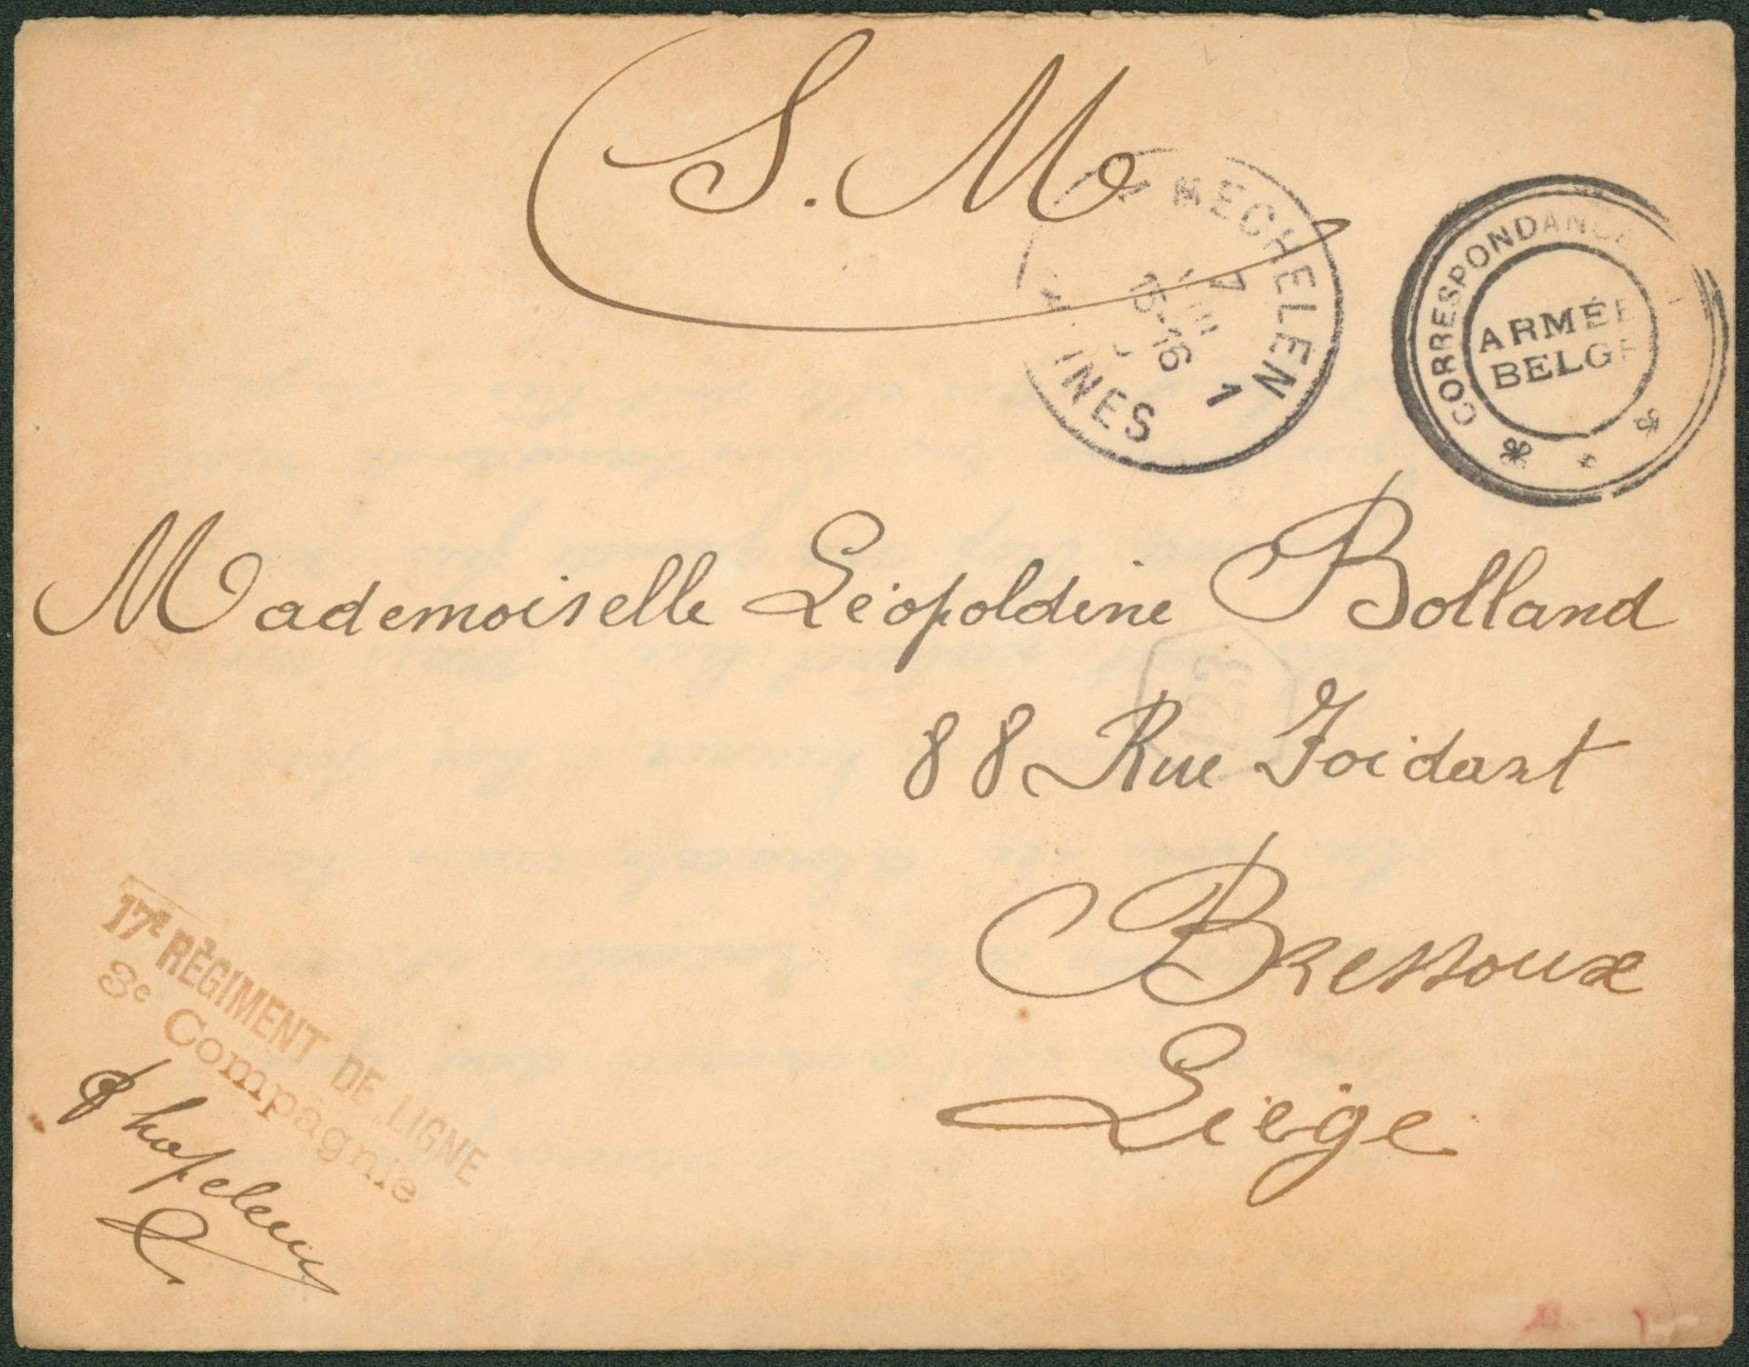 S. M.
MECHELEN
7
VIII
15-16
1
INES
CORRESPONDANCE
ARMÉE
BELGE
Mademoiselle Léopoldine Bolland
88 Rue Foidart
Bressoux
Liège
17E RÉGIMENT DE LIGNE
3e Compagnie